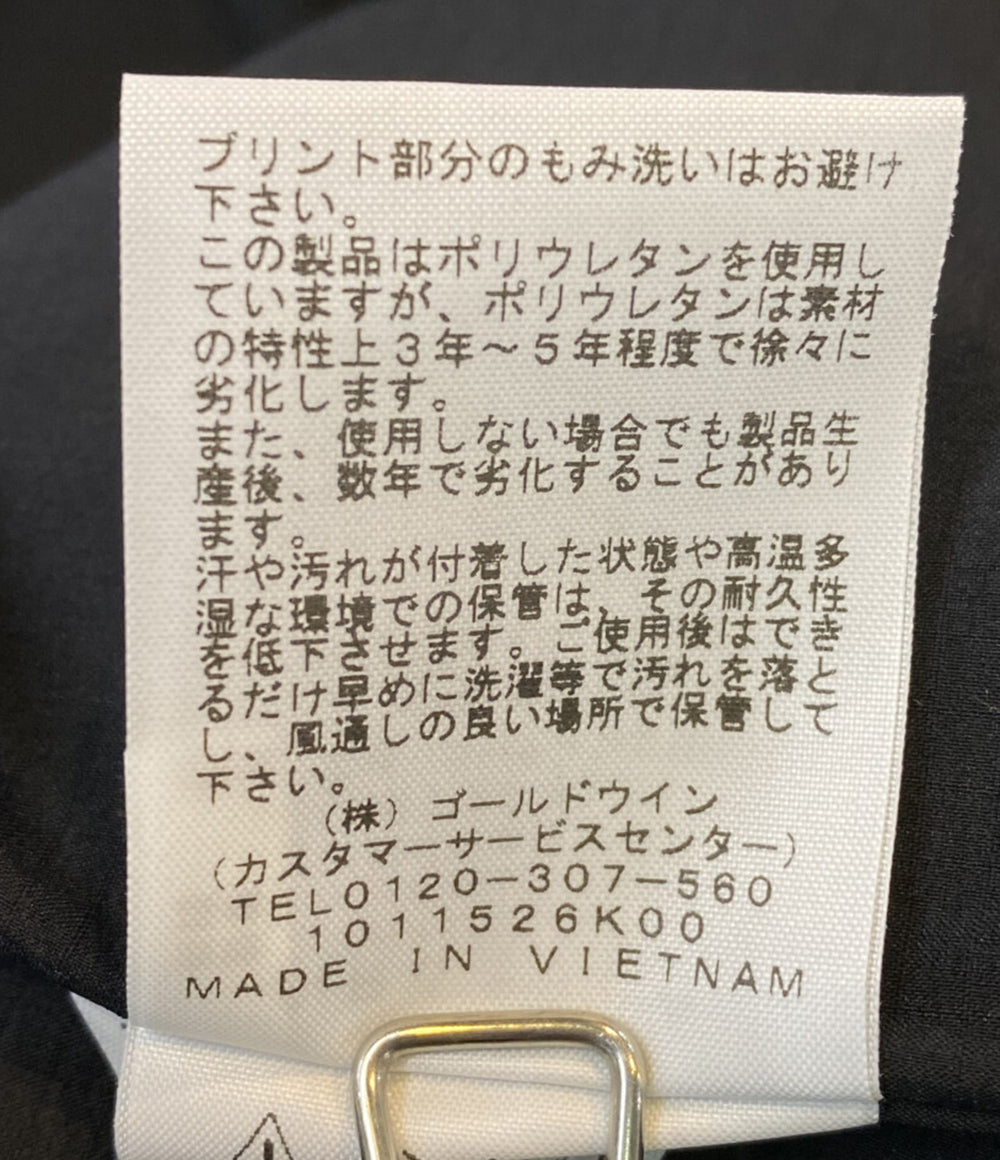 プリント部分のもみ洗いはお避け
下さい。
この製品はポリウレタンを使用し
ていますが、ポリウレタンは素材
の特性上3年～5年程度で徐々に
劣化します。
また、使用しない場合でも製品生
産後、数年で劣化することがあり
ます。
汗や汚れが付着した状態や高温多
湿な環境での保管は、その耐久性
を低下させます。ご使用後はでき
るだけ早めに洗濯等で汚れを落と
し、風通しの良い場所で保管して
下さい。
（株）ゴールドウイン
（カスタマーサービスセンター）
TEL0120-307-560
1011526K00
MADE IN VIETNAM